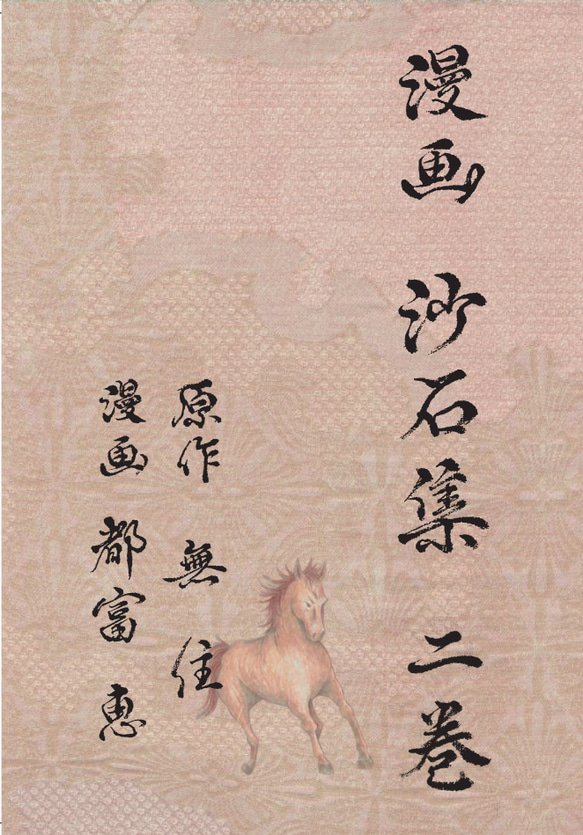 漫画 沙石集 二巻
原作 無住
漫画 都富 恵